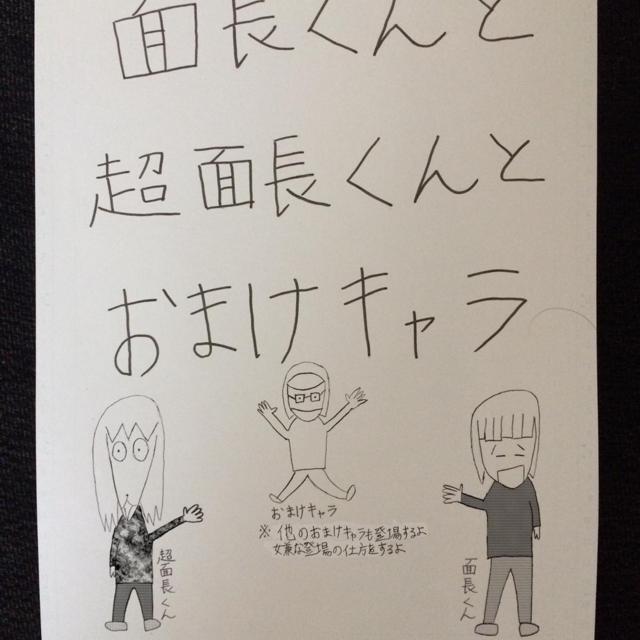 面長くんと
超面長くんと
おまけキャラ
おまけキャラ
※ 他のおまけキャラも登場するよ
嫌な登場の仕方をするよ
超面長くん
面長くん